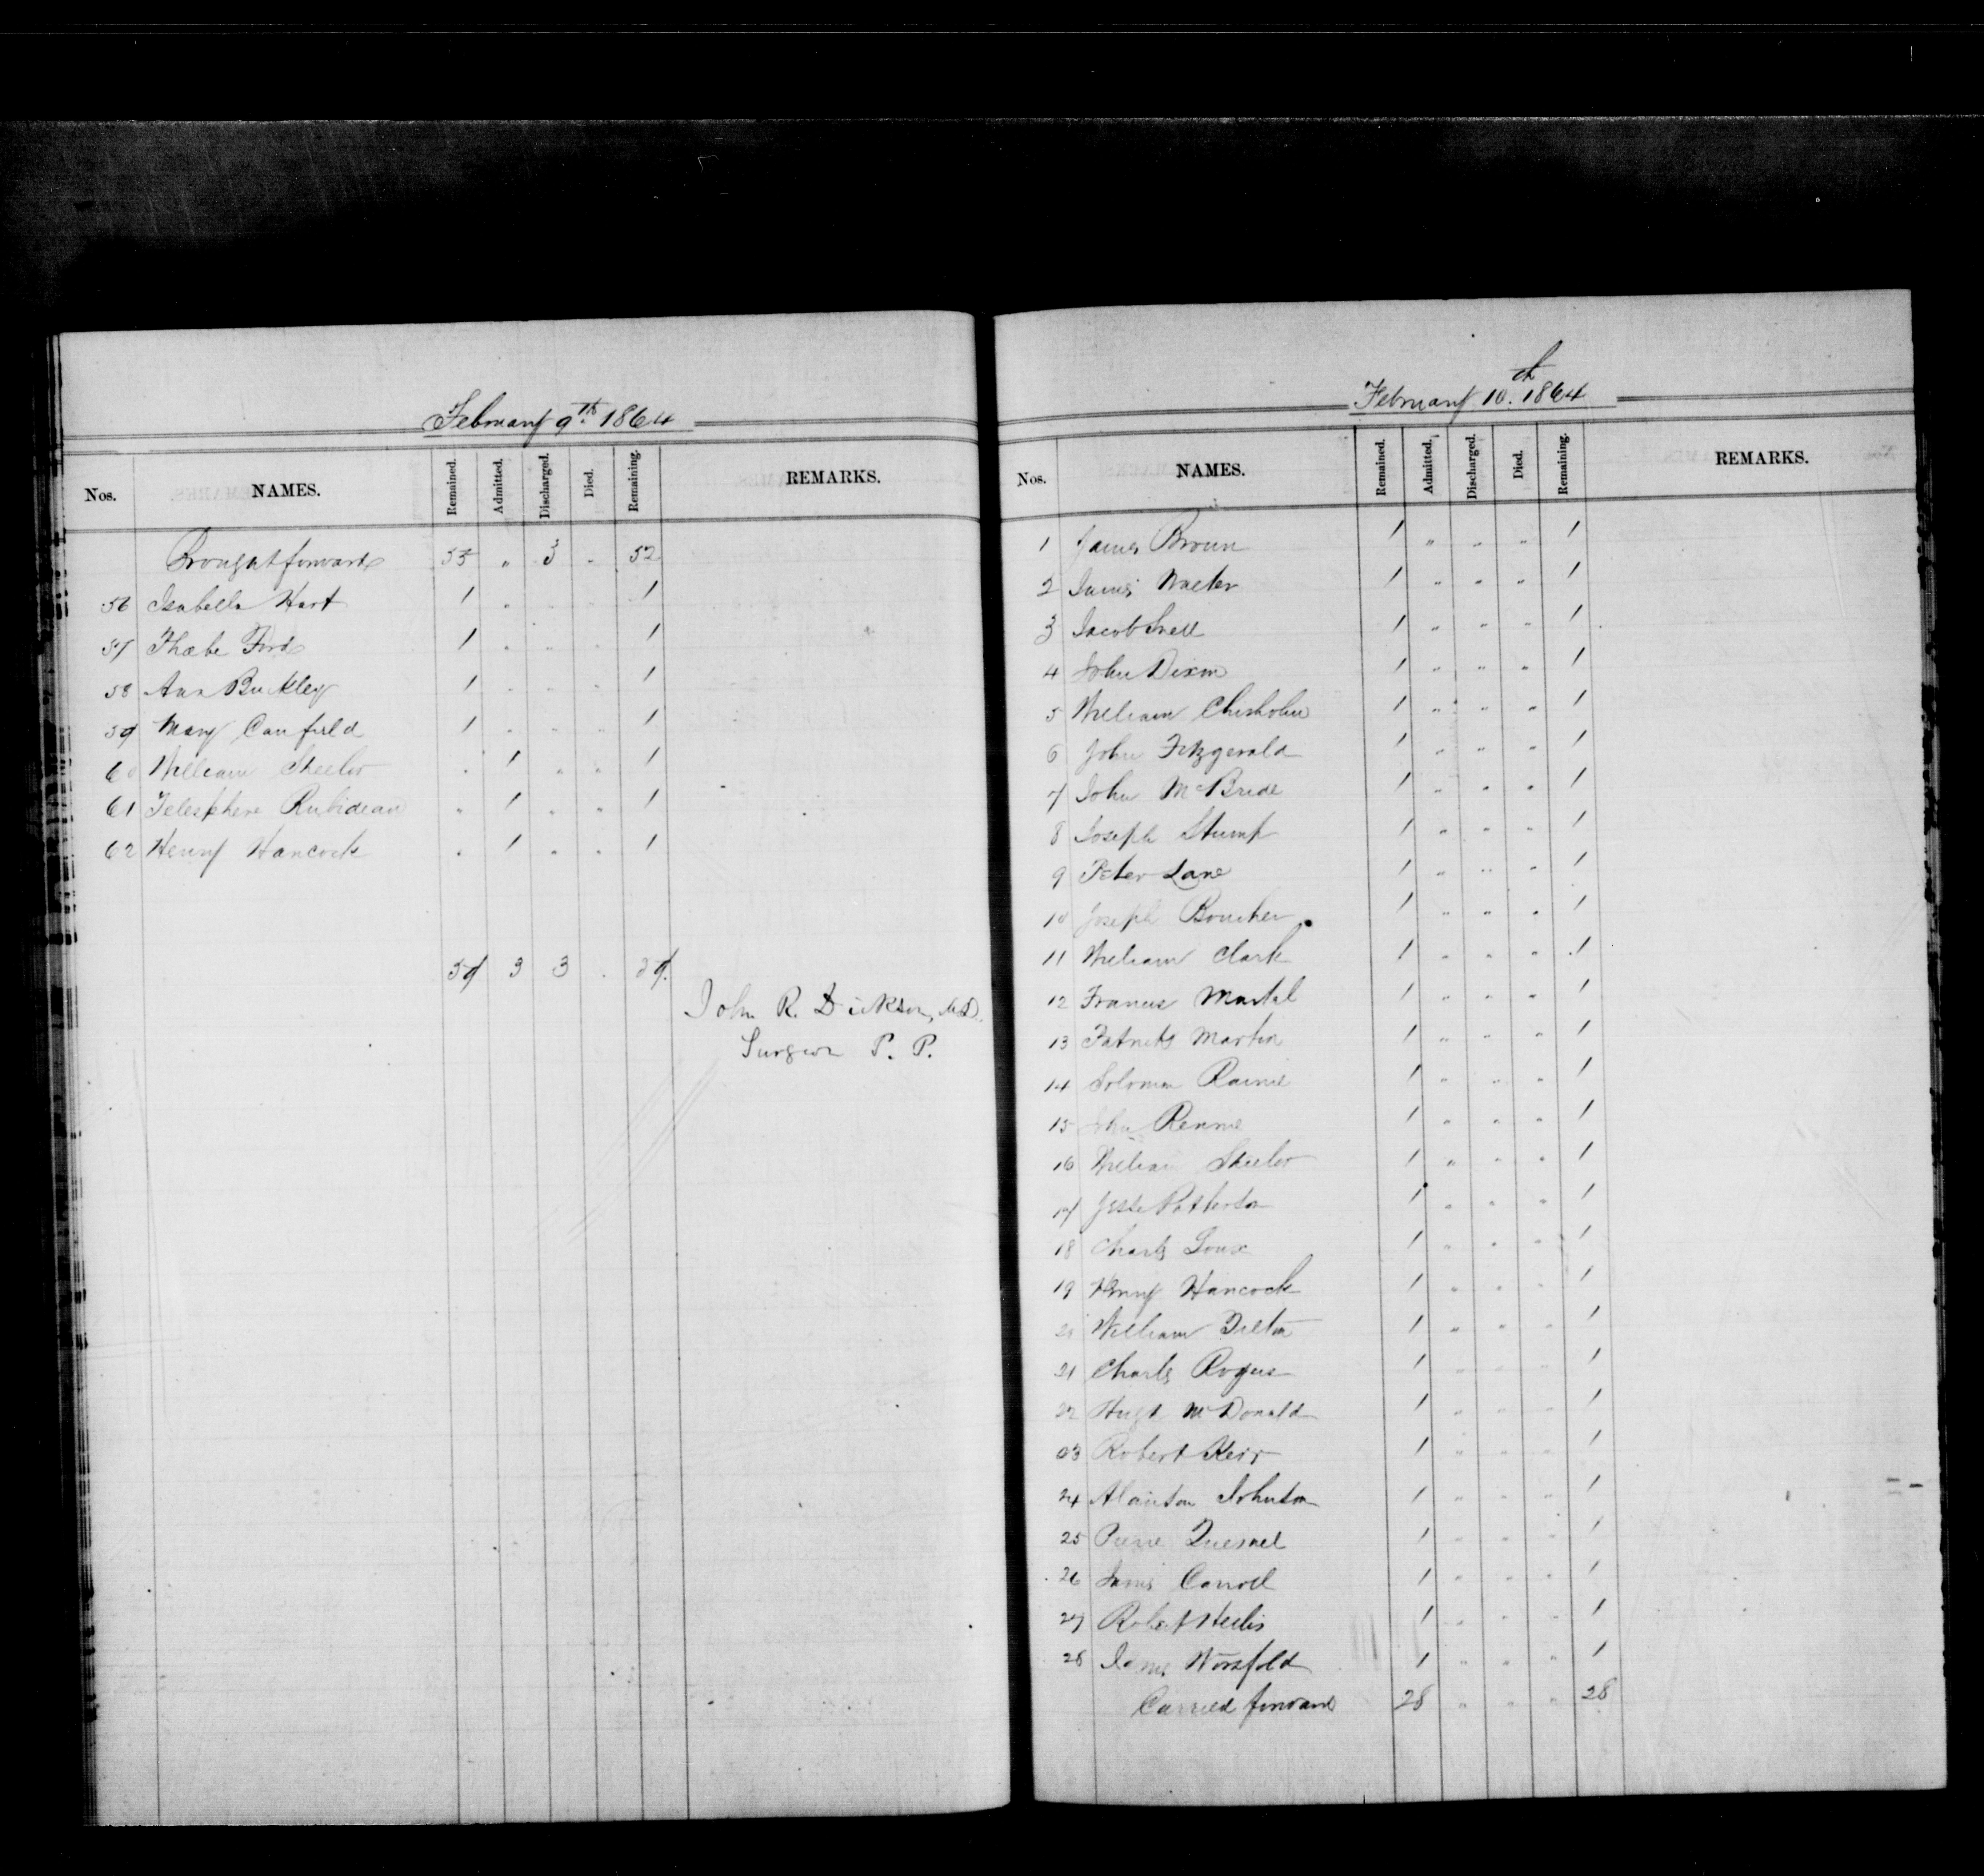 February 9th. 1864
Nos. NAMES. Remained. Admitted. Discharged. Died. Remaining. REMARKS.
Brought forward 55 " 3 " 52
56 Isabella Hart 1 " " " 1
57 Phœbe Ford 1 " " " 1
58 Ann Buckley 1 " " " 1
59 Mary Canfield 1 " " " 1
60 William Sheeler " 1 " " 1
61 Telesphore Rubideau " 1 " " 1
62 Henry Hancock " 1 " " 1
59 3 3 " 59.
John R. Dickson, M.D.
Surgeon P. P.
February 10th. 1864
Nos. NAMES. Remained. Admitted. Discharged. Died. Remaining. REMARKS.
1 James Brown 1 " " " 1
2 James Walter 1 " " " 1
3 Jacob Snell 1 " " " 1
4 John Dixon 1 " " " 1
5 William Chisholm 1 " " " 1
6 John Fitzgerald 1 " " " 1
7 John McBride 1 " " " 1
8 Joseph Stump 1 " " " 1
9 Peter Lane 1 " " " 1
10 Joseph Boucher 1 " " " 1
11 William Clark 1 " " " 1
12 Francis Martel 1 " " " 1
13 Patrick Martin 1 " " " 1
14 Solomon Rainie 1 " " " 1
15 John Rennie 1 " " " 1
16 William Sheeler 1 " " " 1
17 Jesse Patterson 1 " " " 1
18 Charles Goux 1 " " " 1
19 Henry Hancock 1 " " " 1
20 William Dilton 1 " " " 1
21 Charles Rogers 1 " " " 1
22 Hugh McDonald 1 " " " 1
23 Robert Kerr 1 " " " 1
24 Alanson Johnson 1 " " " 1
25 Pierre Quesnel 1 " " " 1
26 James Carroll 1 " " " 1
27 Robert 1 " " " 1
28 James Worsfold 1 " " " 1
Carried forward 28 " " " 28